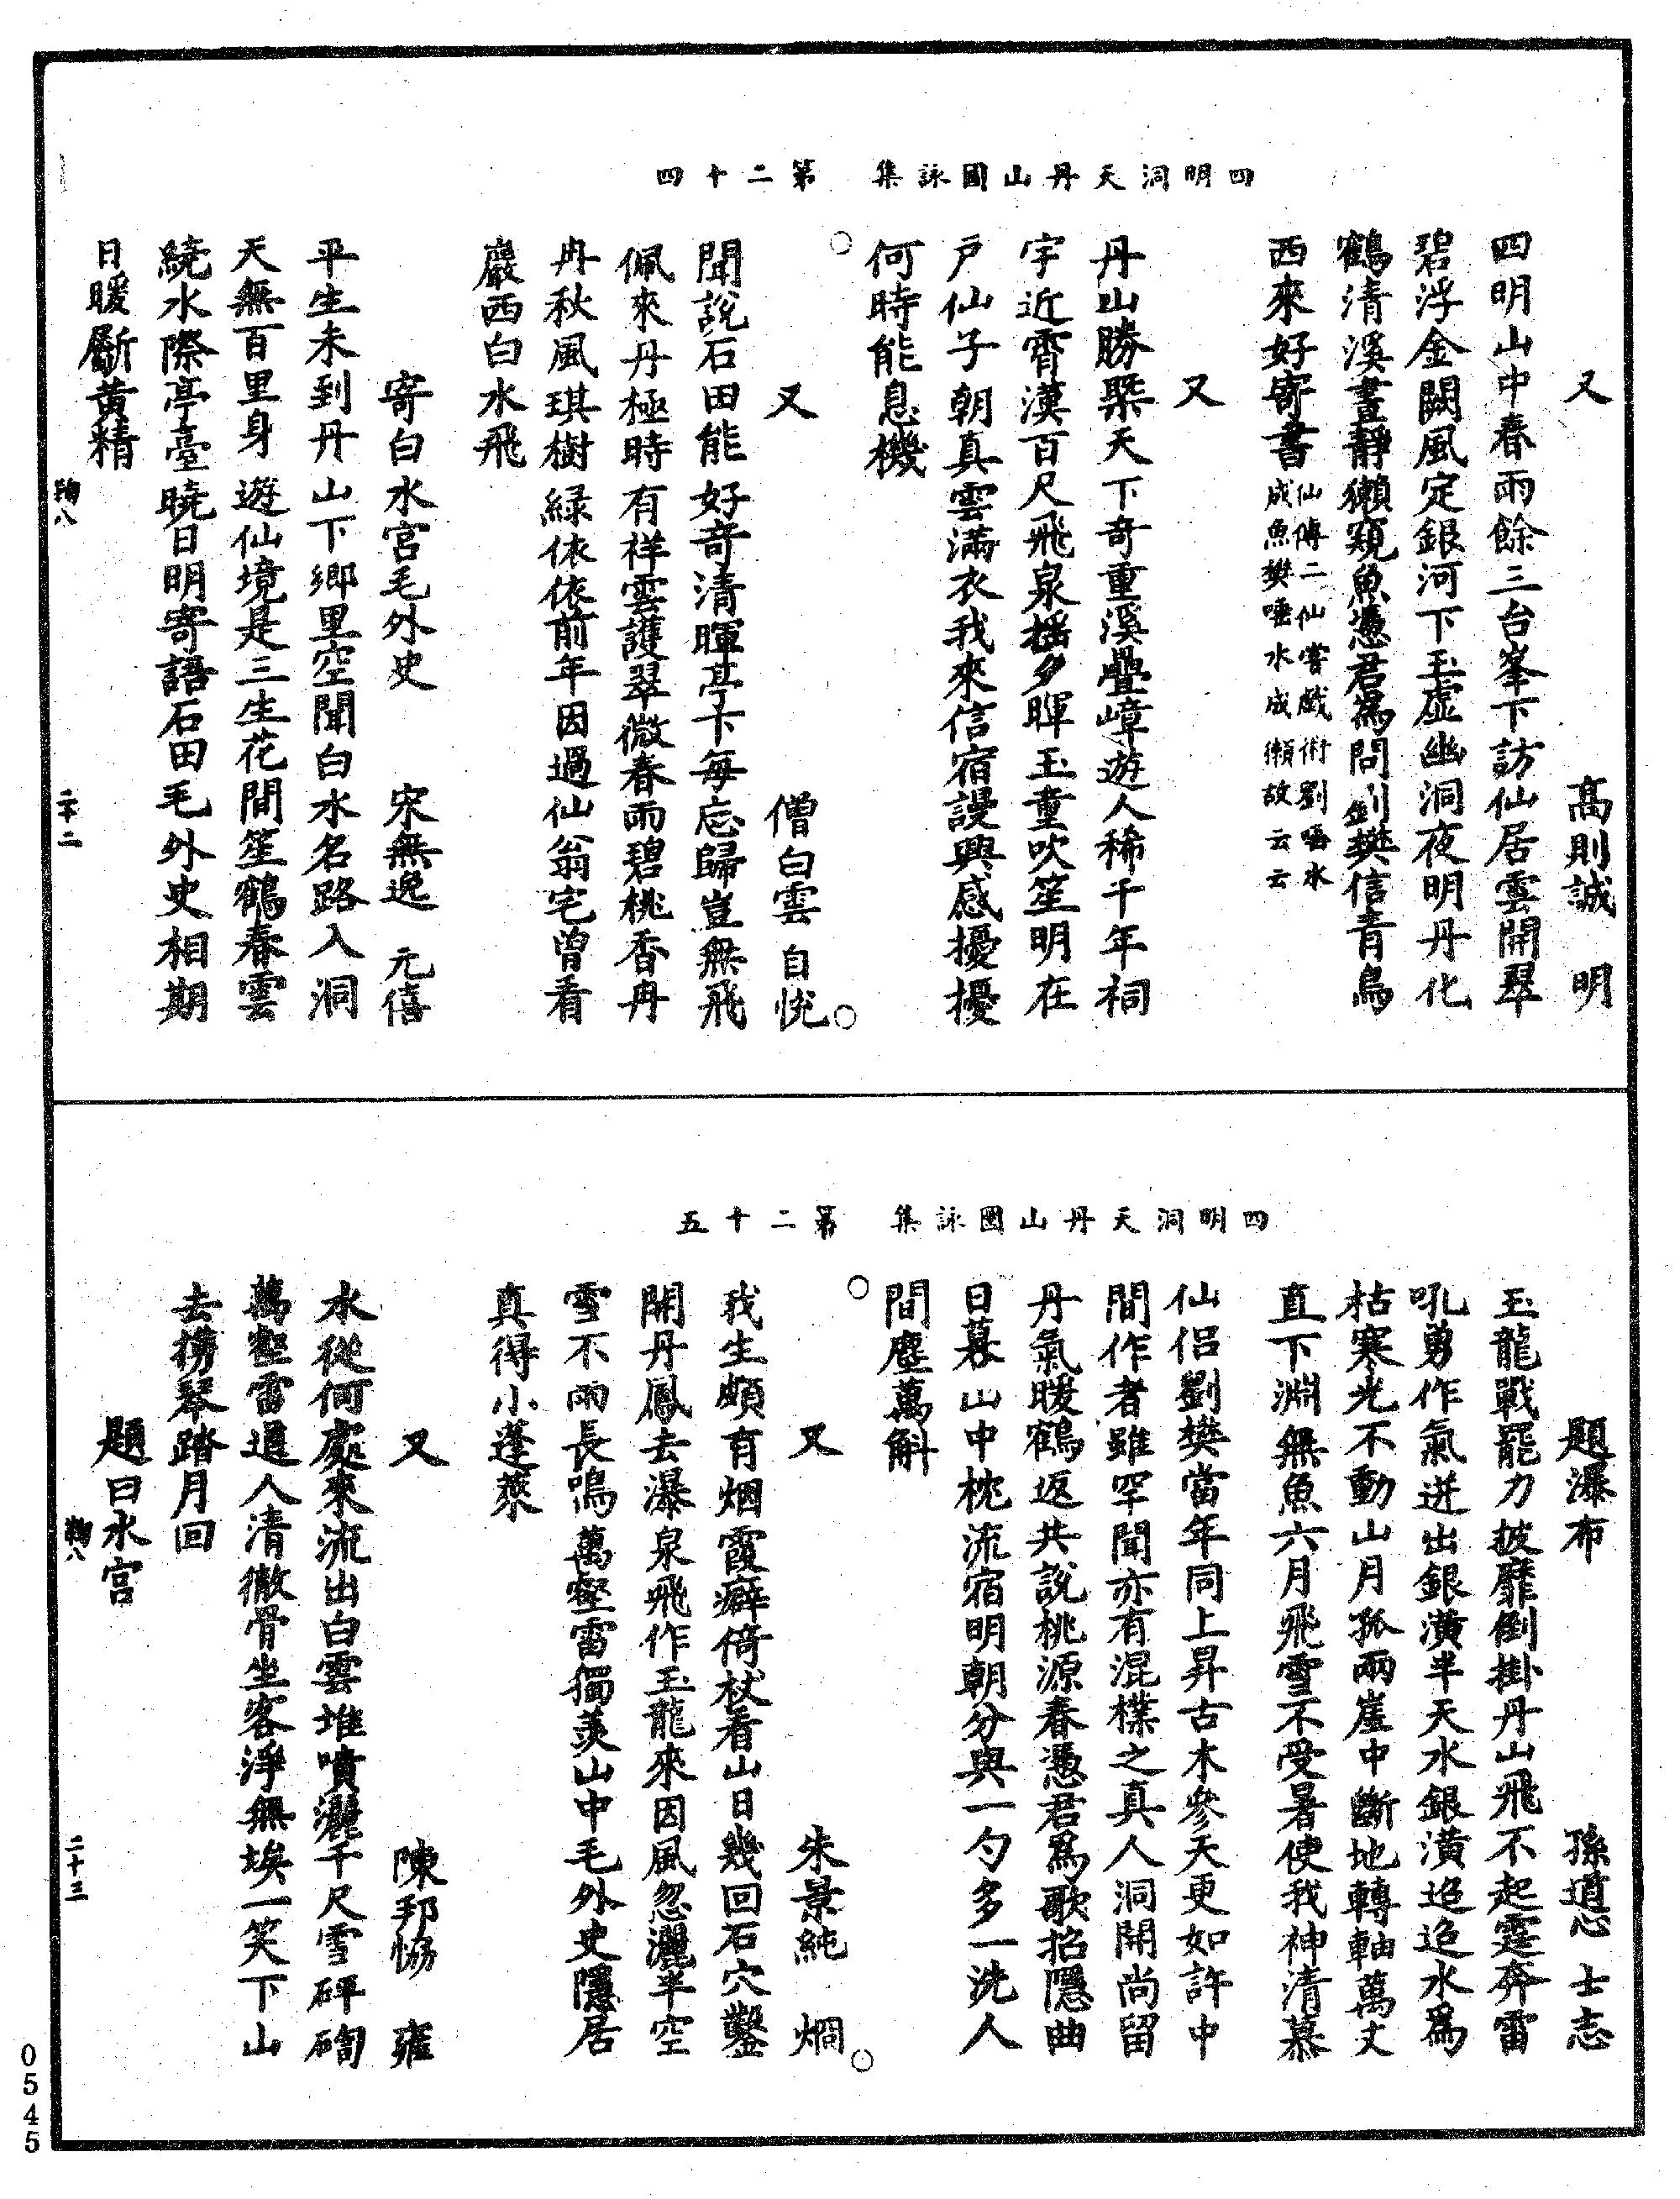 四明洞天丹山圖詠集　第二十四
又　高則誠　明
四明山中春雨餘三台峯下訪仙居雲開翠
碧浮金闕風定銀河下玉虛幽洞夜明丹化
鶴清溪晝靜獺窺魚憑君爲問劉樊信青鳥
西來好寄書仙傳二仙嘗戲術劉唾水
成魚樊唾水成獺故云云
又
丹山勝槩天下奇重溪疊嶂遊人稀千年祠
宇近霄漢百尺飛泉搖夕暉玉童吹笙明在
戶仙子朝真雲滿衣我來信宿謾興感擾擾
何時能息機
又　僧白雲　自悅
聞說石田能好奇清暉亭下每忘歸豈無飛
佩來丹極時有祥雲護翠微春雨碧桃香冉
冉秋風琪樹綠依依前年因過仙翁宅曾看
巖西白水飛
寄白水宮毛外史　宋無逸　元僖
平生未到丹山下鄉里空聞白水名路入洞
天無百里身遊仙境是三生花間笙鶴春雲
繞水際亭臺曉日明寄語石田毛外史相期
日暖斸黃精
鞠八　二十二
四明洞天丹山圖詠集　第二十五
題瀑布　孫道心　士志
玉龍戰罷力披靡倒掛丹山飛不起霆奔雷
吼勇作氣迸出銀潢半天水銀潢迢迢水爲
枯寒光不動山月孤兩崖中斷地轉軸萬丈
直下淵無魚六月飛雪不受暑使我神清慕
仙侶劉樊當年同上昇古木參天更如許中
間作者雖罕聞亦有混樸之真人洞開尚留
丹氣暖鶴返共說桃源春憑君爲歌招隱曲
日暮山中枕流宿明朝分與一勺多一洗人
間塵萬斛
又　朱景純　燗
我生頗有烟霞癖倚杖看山日幾回石穴鑿
開丹鳳去瀑泉飛作玉龍來因風忽灑半空
雪不雨長鳴萬壑雷獨羨山中毛外史隱居
真得小蓬萊
又　陳邦協　雍
水從何處來流出白雲堆噴灑千尺雪砰磤
萬壑雷道人清徹骨坐客淨無埃一笑下山
去攜琴踏月回
題白水宮
鞠八　二十三
0545